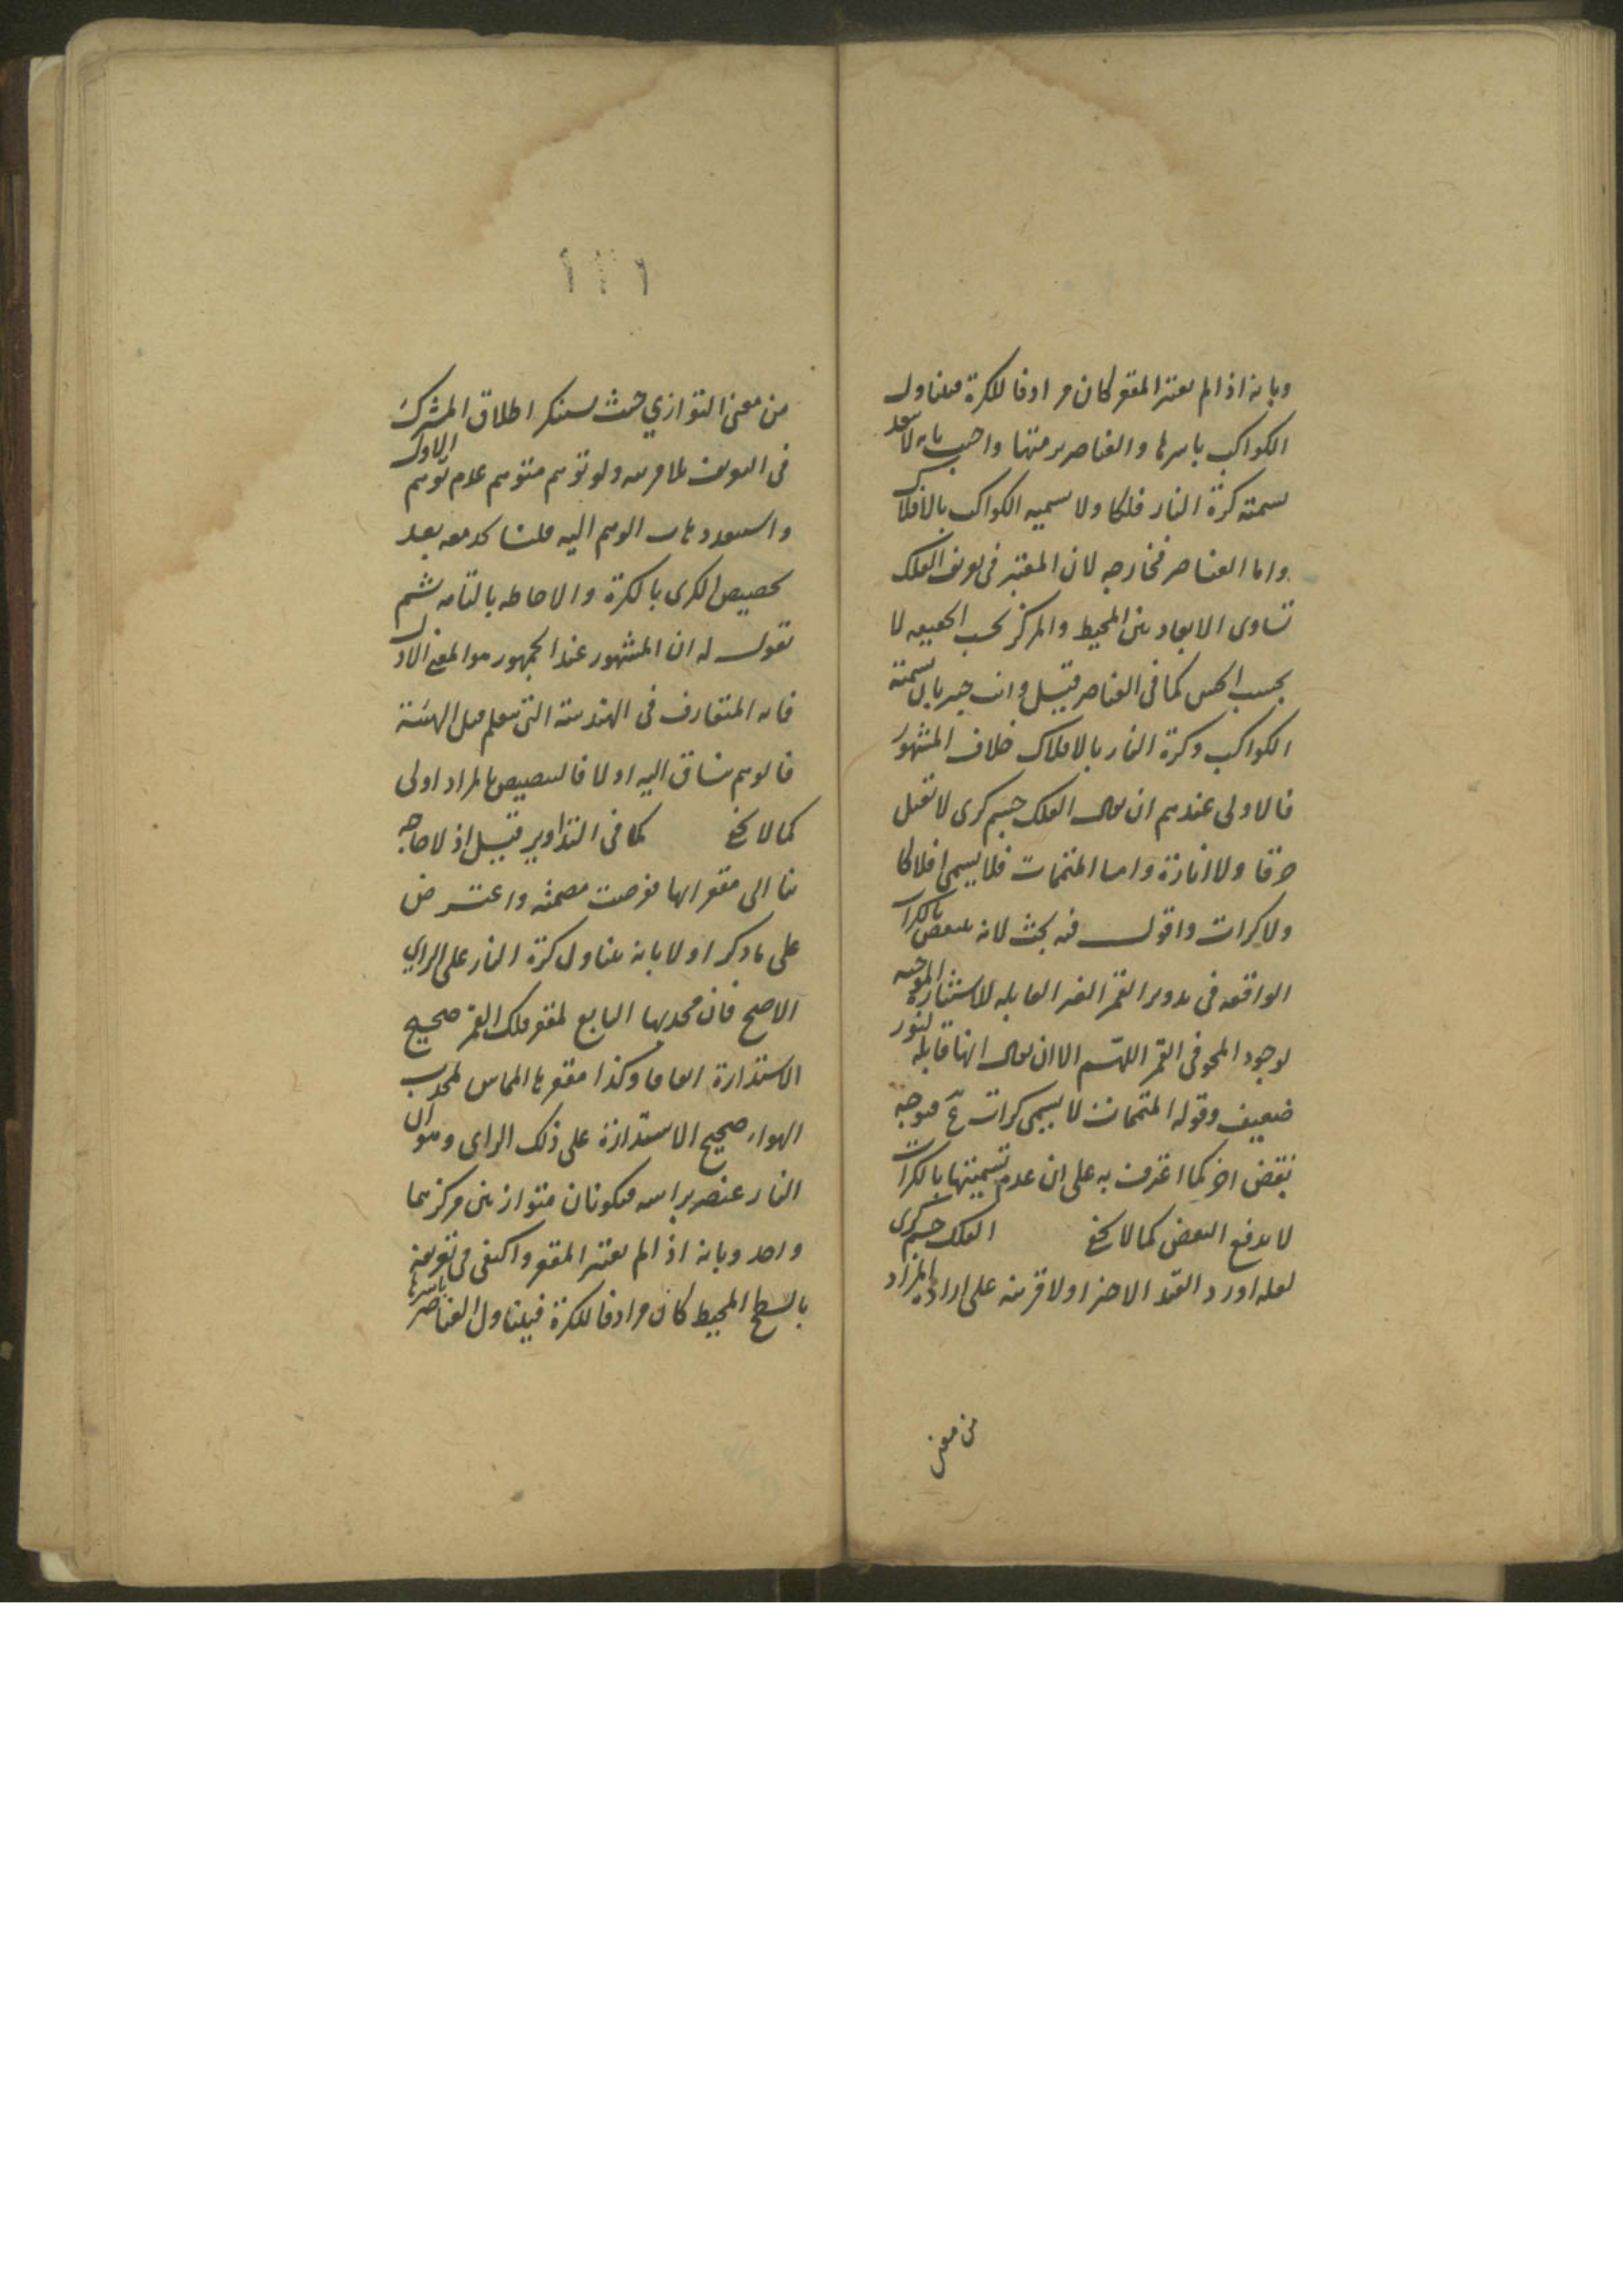 وبانه اذا لم يعتبر المقعر كان مرادفا للكرة فيتناول
الكواكب باسرها والعناصر برمتها واجيب بانه لا بعد
تسمية كرة النار فلكا ولا تسمية الكواكب بالافلاك
واما العناصر فخارجه لان المعتبر فى تعريف الفلك
تساوى الابعاد بين المحيط والمركز بحسب الحقيقه لا
بحسب الحس كما فى العناصر قيل وانت خبير بان تسمية
الكواكب وكرة النار بالافلاك خلاف المشهور
فالاولى عندهم ان يقال الفلك جسم كرى لا تقبل
خرقا ولا انارة واما المتممات فلا يسمى افلاكا
ولا كرات واقول فيه بحث لانه ينتقض بالكرات
الواقعه فى تدوير القمر الغير القابله للاستنارة الموجبه
لوجود المحو فى القمر اللهم الا ان يقال انها قابله لنور
ضعيف وقوله المتممات لا يسمى كرات ع فيوجه
نقض اخر كما اعترف به على ان عدم تسميتها بالكرات
لا يدفع النقض كما لا يخفى الفلك جسم كرى
لعله اورد القيد الاخير اولا قرينه على ارادة المراد
من معنى
من معنى التوازي حيث يستنكر اطلاق المشترك
فى التعريف بلا قرينه ولو توهم متوهم عدم توهم الاول
واستبعد ذهاب الوهم اليه قلنا كدفعه بعد
تخصيص الكرى بالكرة والاحاطه بالتامه ثم
نقول له ان المشهور عند الجمهور هو المعنى الاول
فانه المتعارف فى الهندسة التى تعلم قبل الهيئة
فالوهم يساق اليه اولا فالتنصيص بالمراد اولى
كما لا يخفى كما فى التداوير قيل اذ لا حاجه
بنا الى مقعراتها فرضت مصمته واعترض
على ما ذكر اولا بانه يتناول كرة النار على الراي
الاصح فان محدبها التابع لمقعر فلك القمر صحيح
الاستدارة اتفاقا وكذا مقعرها المماس لمحدب
الهواء صحيح الاستدارة على ذلك الراى وهو ان
النار عنصر براسه فيكونان متوازيين مركزهما
واحد وبانه اذا لم يعتبر المقعر واكتفى فى تعريفه
بالسطح المحيط كان مرادفا للكرة فيتناول العناصر باسرها